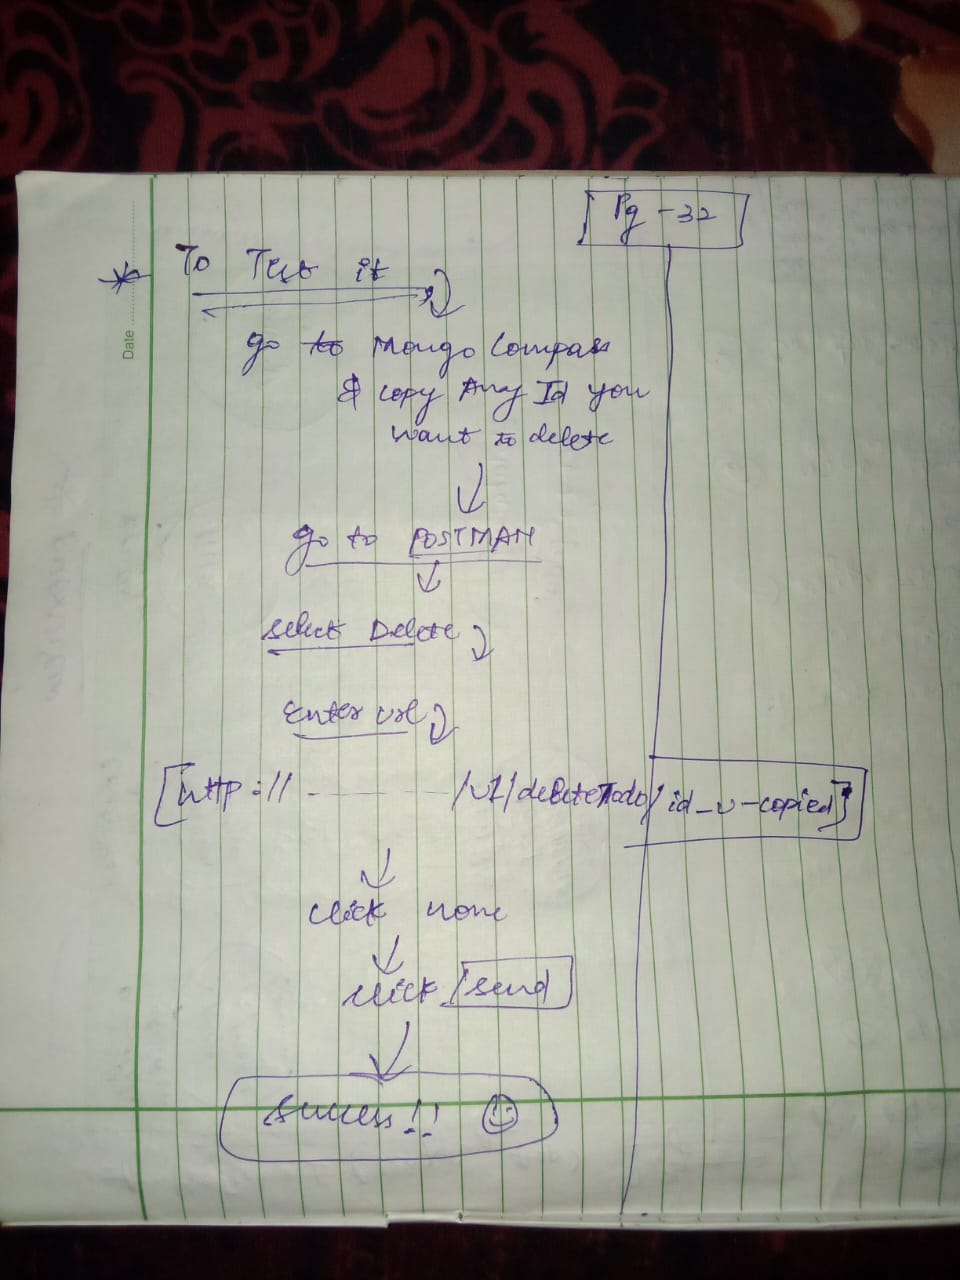 Pg - 32
Date
To Test it
go to Mongo Compass
& copy Any Id you
want to delete
go to POSTMAN
select Delete
Enter url
[http:// - - - - - /v1/deleteTodo/id_u-copied]
click none
click [send]
success!!